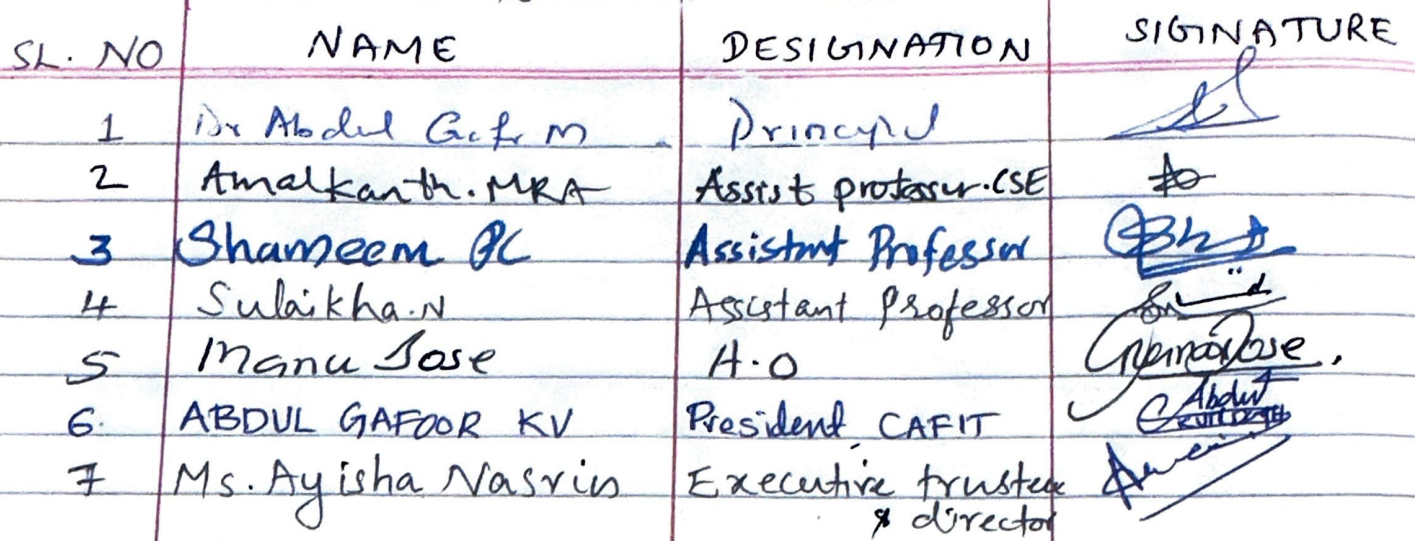 SL. NO NAME DESIGNATION SIGNATURE
1 Dr Abdul Gafr M Principal
2 Amalkanth. MRA Assist professur. CSE
3 Shameem PC Assistant Professor
4 Sulaikha.N Assistant Professor
5 Manu Jose A.O Jose.
6. ABDUL GAFOOR KV President, CAFIT Abdul
7 Ms. Ayisha Nasrin Executive trustee
& director